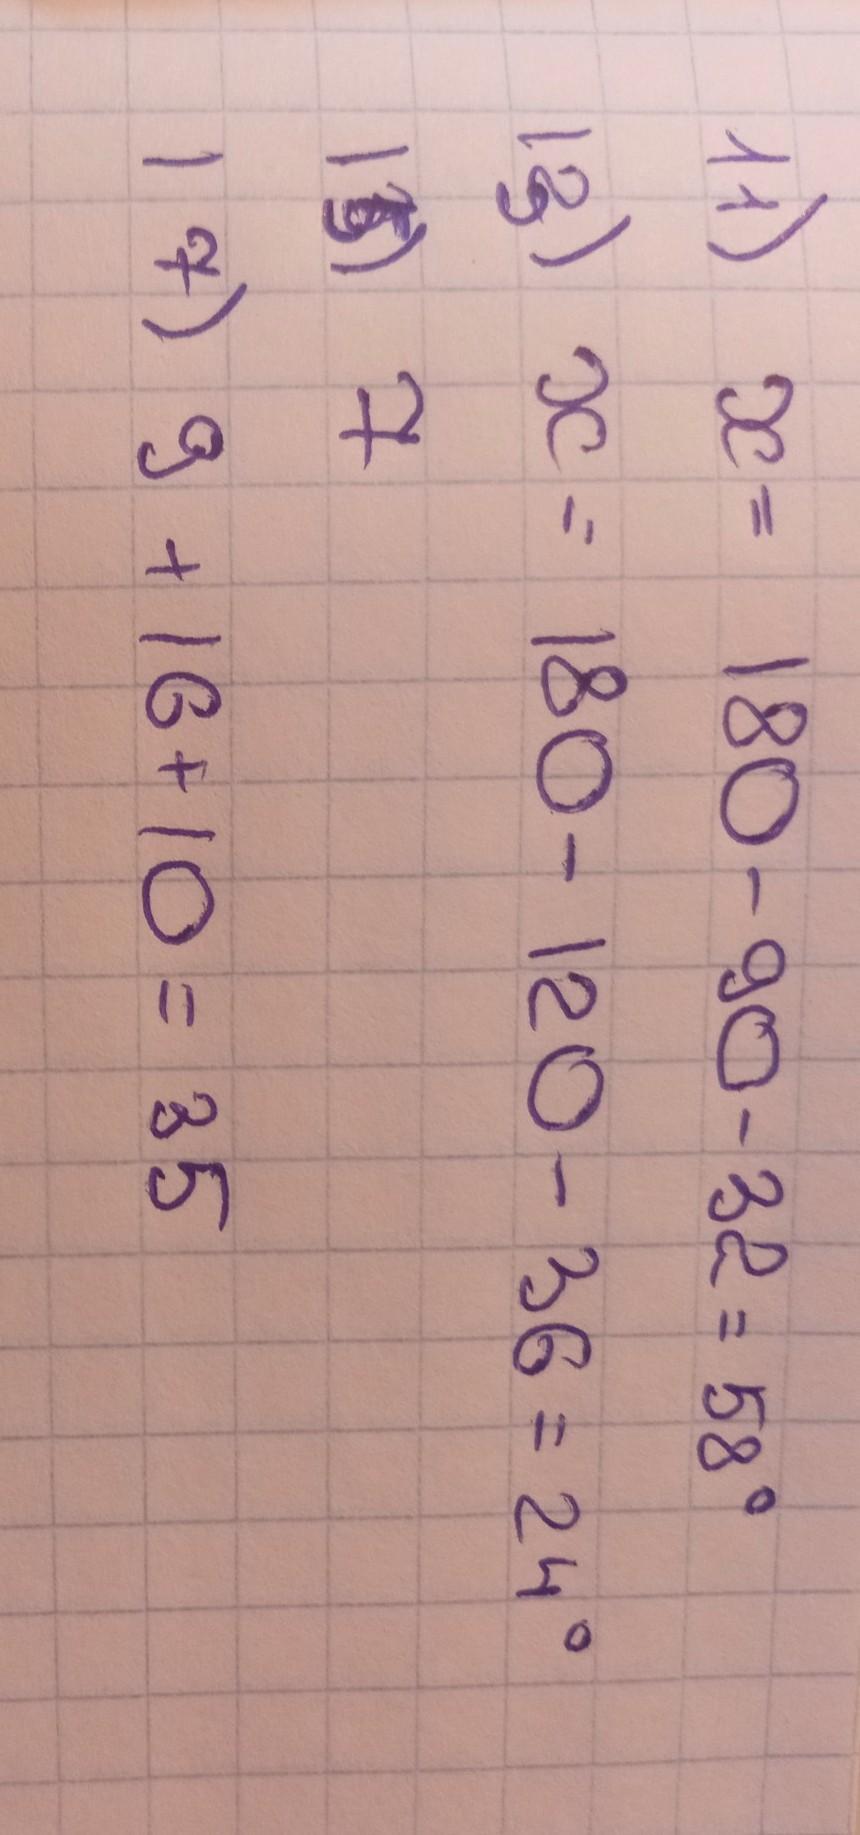 11) x = 180 - 90 - 32 = 58°
13) x = 180 - 120 - 36 = 24°
15) 7
17) 9 + 16 + 10 = 35